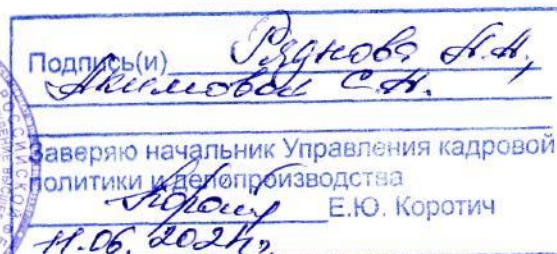 Подпись(и) Ряднова А.А,
Акимовой С.Н.
Заверяю начальник Управления кадровой
политики и делопроизводства
Е.Ю. Коротич
11.06.2021г.
РОССИЙСКОЙ